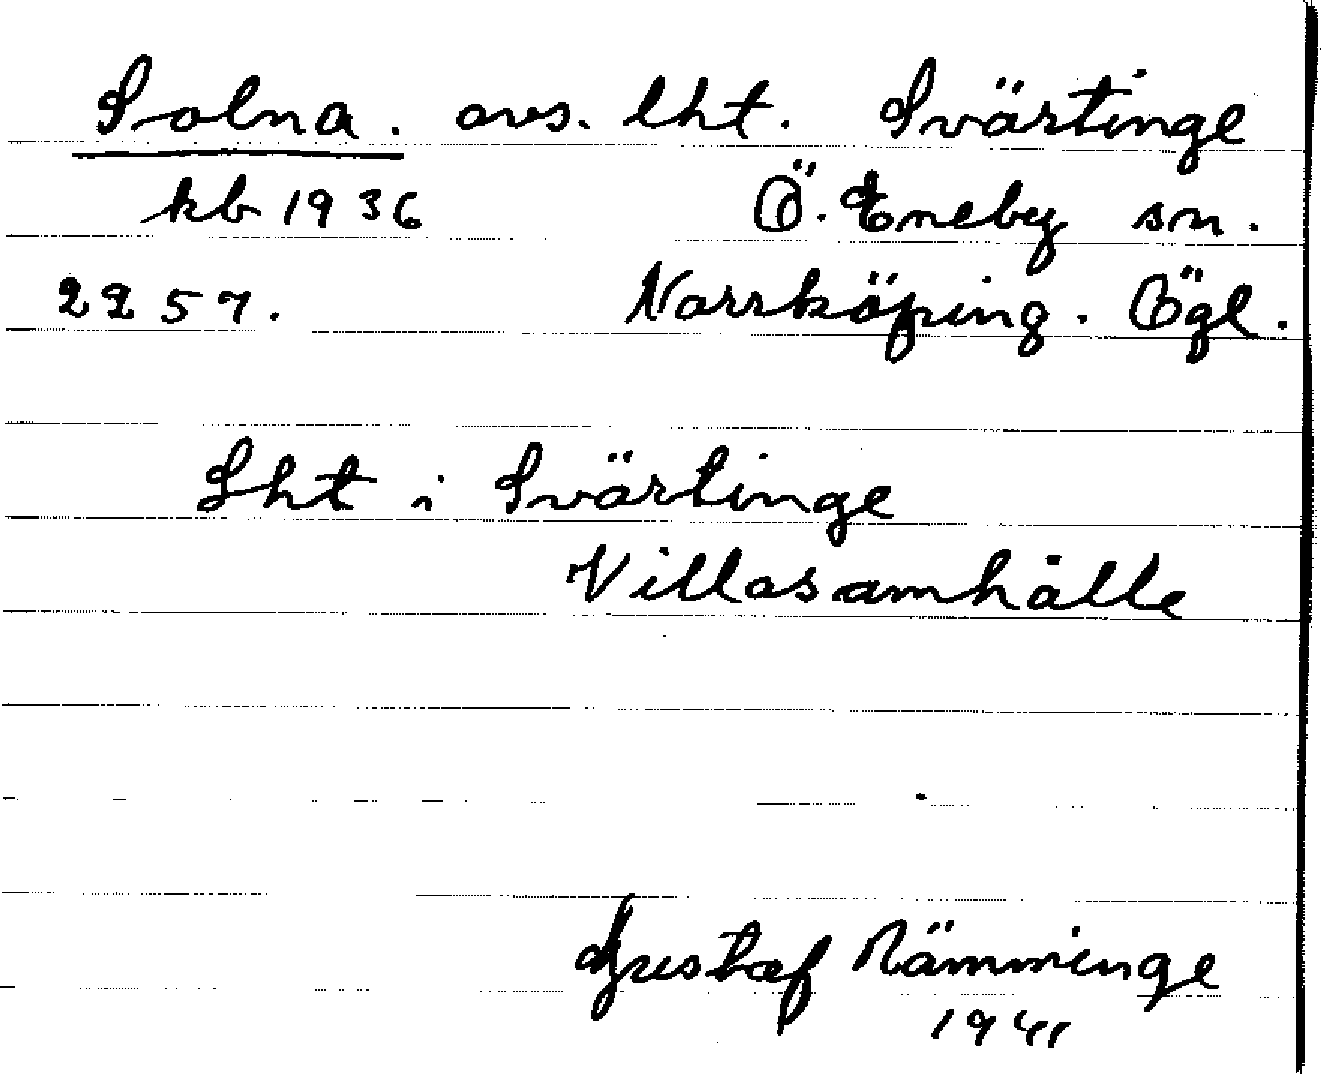 Solna. avs. lht. Svärtinge
kb 1936 Ö. Eneby sn.
2257. Norrköping. Ögl.
Lht i Svärtinge
Villasamhälle
Gustaf Rämminge
1941